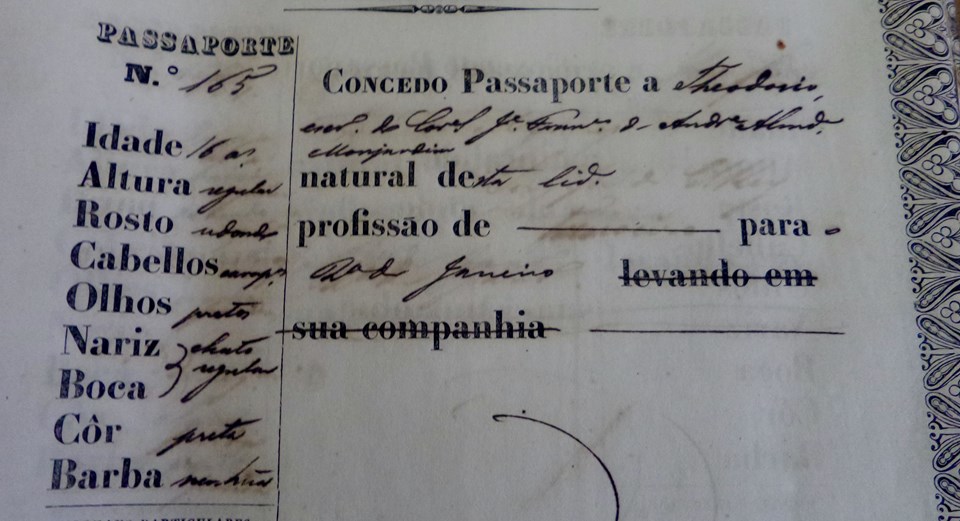 PASSAPORTE
N.º 165
Idade 16 as.
Altura regular
Rosto redondo
Cabellos carap.
Olhos pretos
Nariz } chato
Boca } regular
Côr preta
Barba nenhũa
CONCEDO Passaporte a Theodorio,
escr. do Corel Je. Franco. d Andra Almda.
Monjardim
natural desta Cid.
profissão de para o
Ro de Janeiro levando em
sua companhia